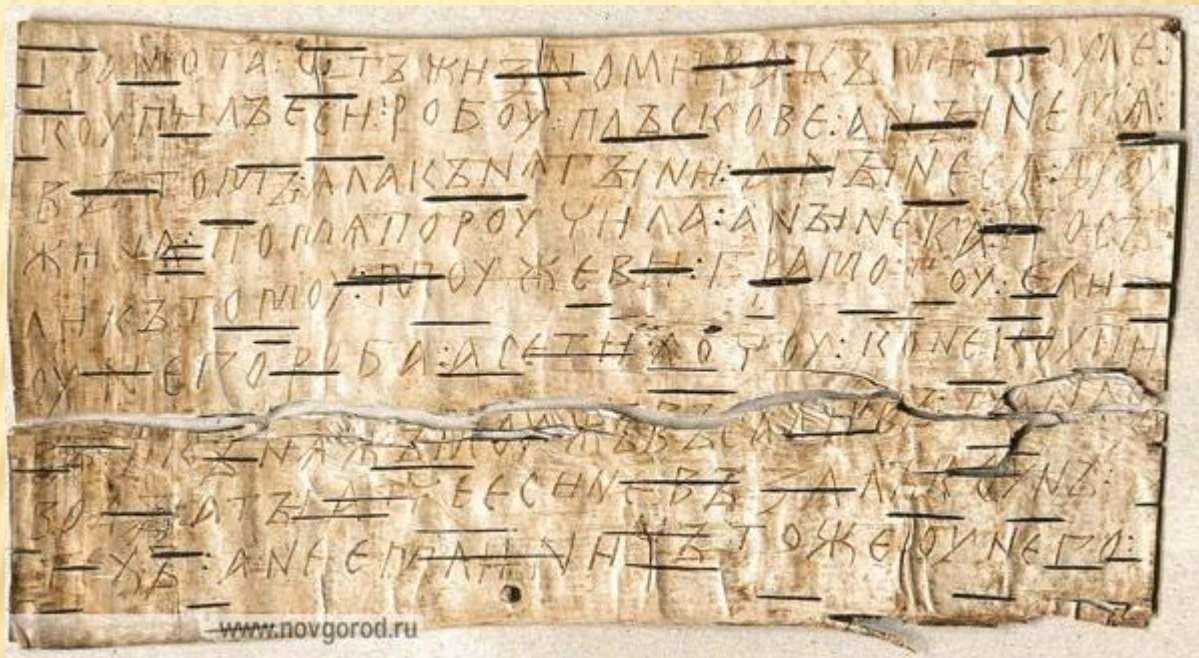 ГРАМОТА : ѠТЪ ЖИЗНОМИРА : КЪ МИКОУЛЕ :
КОУПИЛЪ ЕСИ : РОБОУ : ПЛЪСКОВЕ : А НЪІНЕ МѦ :
ВЪ ТОМЪ : ѦЛА КЪНѦГЪІНИ : А НЪІНЕ СѦ ДРОУ
ЖИНА : ПО МѦ ПОРОУЧИЛА : А НЪІНЕ КА : ПОСЪ
ЛИ КЪ ТОМОУ : МОУЖЕВИ : ГРАМОТОУ : ЕЛИ
ОУ НЕГО РОБА : А СЕ ТИ ХОЧОУ : КОНЕ КОУПИ
ВЪ : И КЪНѦЖЪ МОУЖЪ ВЪСАДИВЪ : ТА НА СЪ
ВОДЪІ : А ТЪІ АТЧЕ ЕСИ НЕ ВЪЗАЛЪ КОУНЪ :
ТЕХЪ : А НЕ ЕМЛИ : НИЧЪТО ЖЕ ОУ НЕГО :
www.novgorod.ru